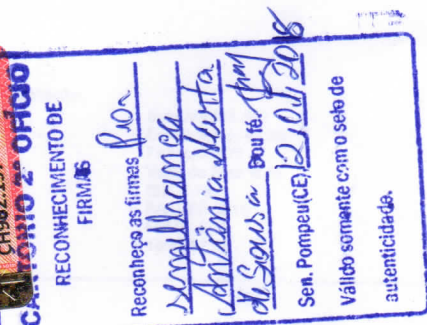 CARTÓRIO 2º OFÍCIO
RECONHECIMENTO DE
FIRMAS
Reconheço as firmas Por
semelhança
Antônia Marta
de Sousa Dou fé.
Sen. Pompeu(CE) 12,01,2018
Válido somente com o selo de
autenticidade.